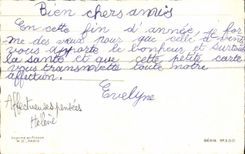 Bien chers amis
En cette fin d'année je for
me des vœux pour que celle à venir
vous apporte le bonheur et surtout
la santé et que cette petite carte
vous transmette toute notre
affection.
Evelyne
Affectueuses pensées
Hélène